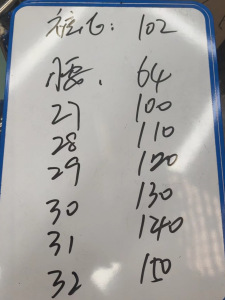 裤长: 102
腰. 64
27 100
28 110
29 120
30 130
31 140
32 150